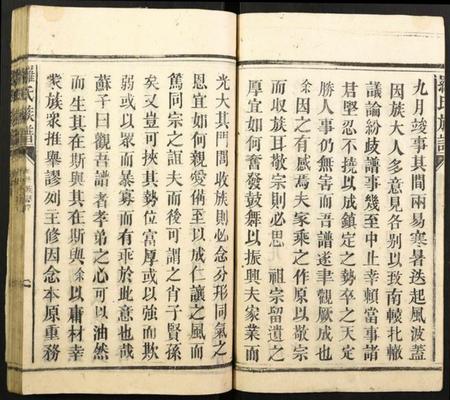 羅氏族譜
九月竣事其間兩易寒暑迭起風波蓋
因族大人多意見各別以致南轅北轍
議論紛歧譜事幾至中止幸賴當事諸
君堅忍不撓以成鎮定之勢卒之天定
勝人事仍無害而吾譜遂聿觀厥成也
余因之有感焉夫家乘之作原以敬宗
而收族耳敬宗則必思 祖宗留遺之
厚宜如何奮發鼓舞以振興夫家業而
光大其門閭收族則必念分形同氣之
恩宜如何親愛偹至以成仁讓之風而
篤同宗之誼夫而後可謂之肖子賢孫
矣又豈可挾其勢位富厚或以強而欺
弱或以眾而暴寡而有乖於此意也哉
蘇子曰觀吾譜者孝弟之心可以油然
而生其在斯與其在斯與余以庸材幸
蒙族眾推舉謬列主修因念本原重務
羅氏族譜